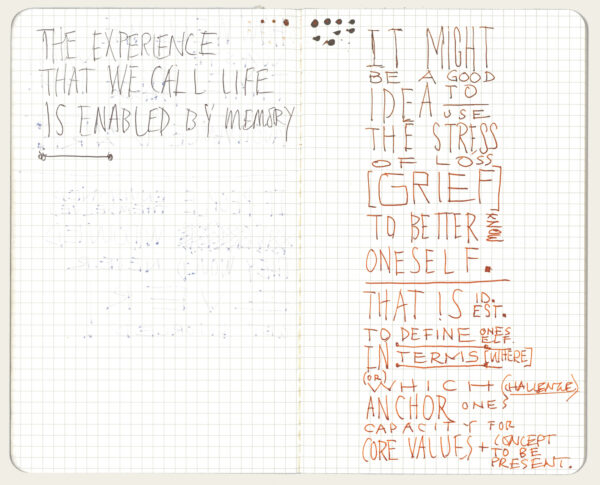 THE EXPERIENCE
THAT WE CALL LIFE
IS ENABLED BY MEMORY
IT MIGHT
BE A GOOD
IDEA TO
USE
THE STRESS
OF LOSS
[GRIEF]
TO BETTER KNOW
ONESELF.
THAT IS ID.
EST.
TO DEFINE ONES
ELF.
IN TERMS [WHERE]
(OR)
WHICH (CHALLENGE)
ANCHOR ONES
CAPACITY FOR
CORE VALUES + CONCEPT
TO BE
PRESENT.